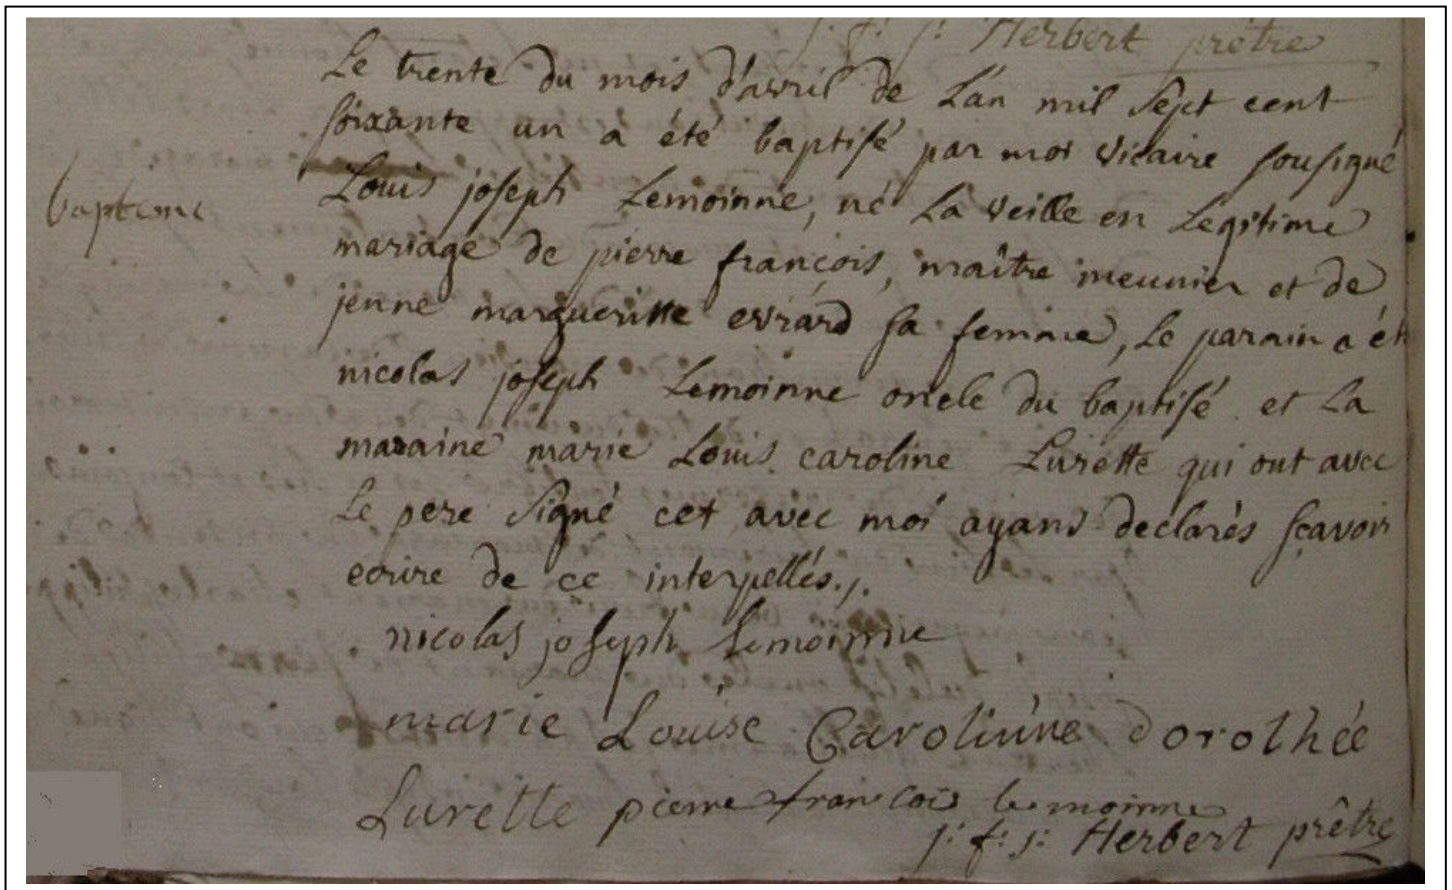 j: f: j: Herbert prêtre
Le trente du mois d'avril de L'an mil Sept cent
soixante un a été baptisé par moi Vicaire sousigné
baptême
Louis joseph Lemoinne, né La veille en Legitime
mariage de pierre françois, maître meunier et de
jenne margueritte evrard sa femme, Le parain a ét
nicolas joseph Lemoinne oncle du baptisé et La
maraine marie Louis caroline Lurette qui ont avec
Le pere Signé cet avec moi ayans declarés sçavoir
ecrire de ce interpellés./.
nicolas joseph lemoinne
marie Louise Caroline dorothée
Lurette pierre francois lemoinne
j: f: j: Herbert prêtre